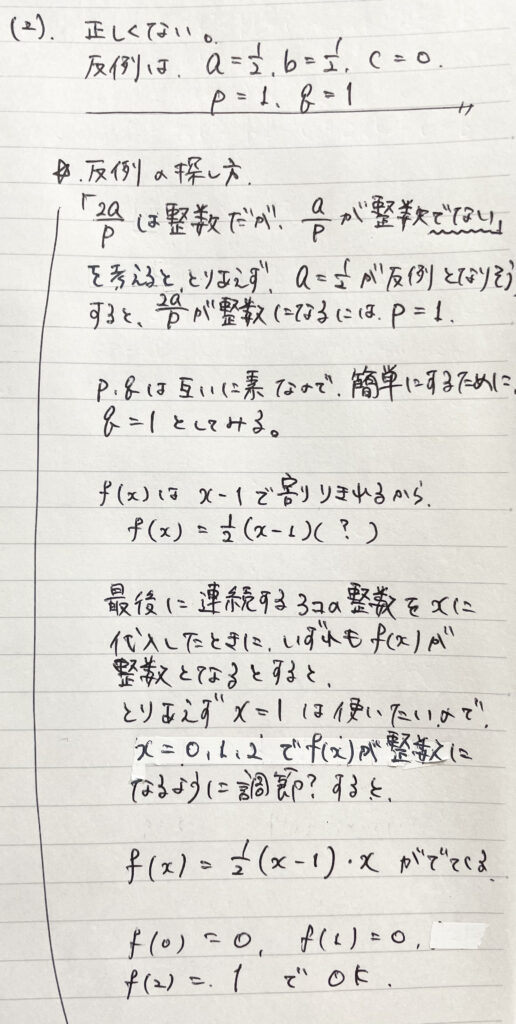 (2). 正しくない。
反例は. a=1/2, b=1/2, c=0.
p=1, q=1
反例の探し方.
「2a/p は整数だが、a/p が整数でない」
を考えると、とりあえず、a=1/2 が反例となりそう
すると、2a/p が整数になるには、p=1.
p, qは互いに素なので、簡単にするために、
q=1 としてみる。
f(x)は x-1 で割りきれるから.
f(x) = 1/2(x-1)( ? )
最後に連続する3コの整数をxに
代入したときに、いずれも f(x)が
整数となるとすると、
とりあえず x=1 は使いたいので、
x=0,1,2 でf(x)が整数に
なるように調節?すると、
f(x) = 1/2(x-1)・x がでてくる
f(0) = 0, f(1) = 0,
f(2) = 1 で OK.